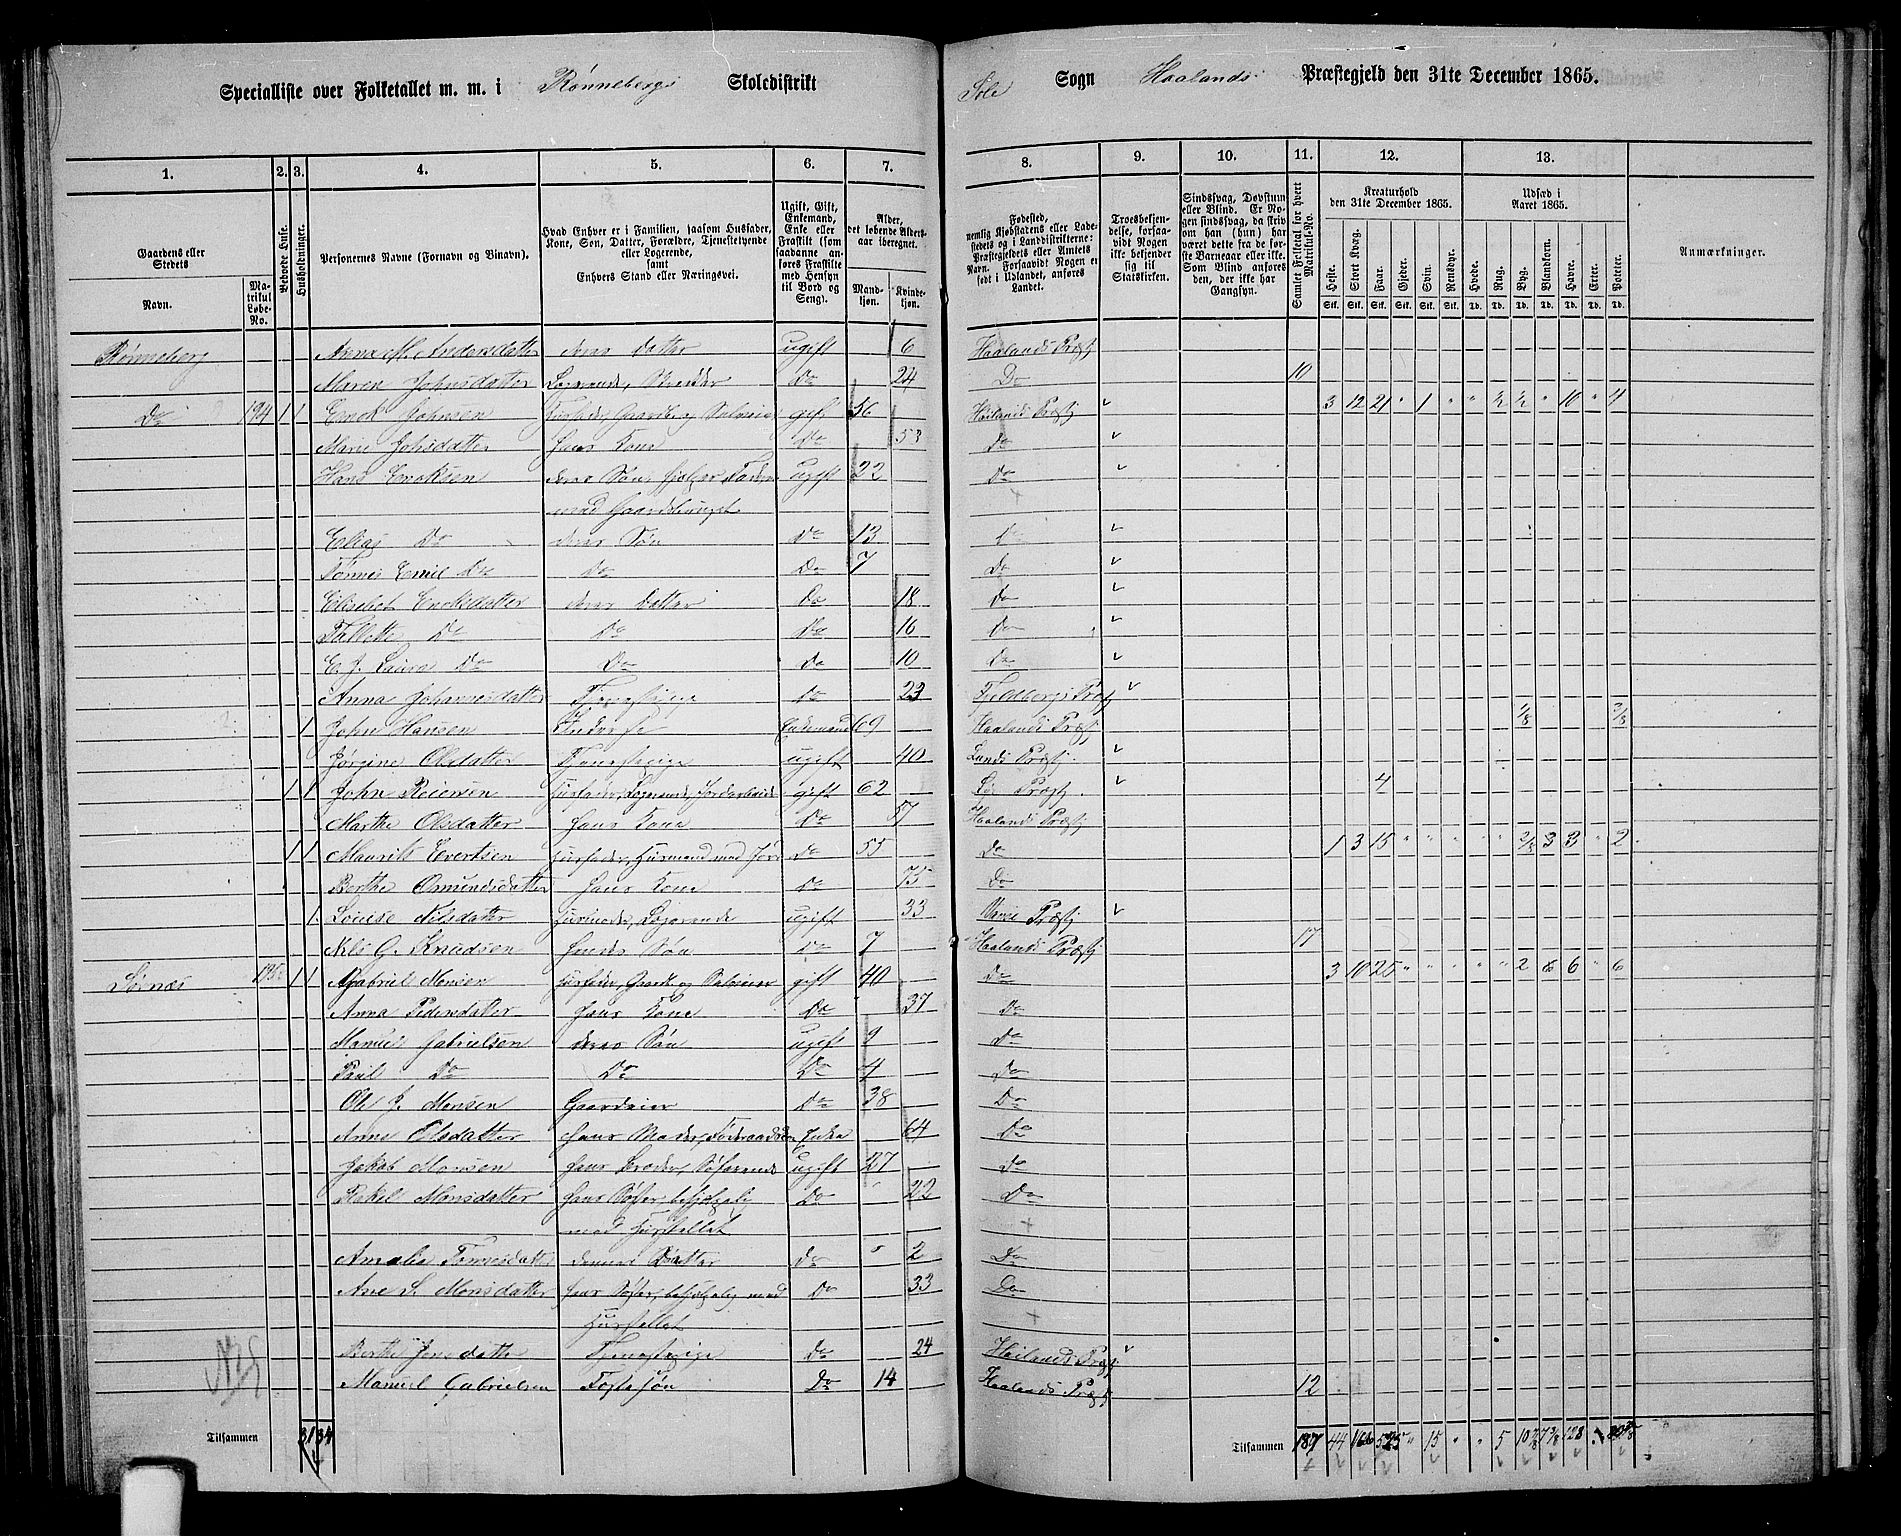 Specialliste over Folketallet m. m. i Rønnebergs Skoledistrikt
Sole Sogn Haalands Præstegjeld den 31te December 1865.
1. 2. 3. 4. 5. 6. 7. 8. 9. 10. 11. 12. 13.
Gaardens eller Stedets
Navn.
Matrikul Løbe-No.
Beboede Huse.
Husholdninger.
Personernes Navne (Fornavn og Binavn).
Hvad Enhver er i Familien, saasom Husfader, Kone, Søn, Datter, Forældre, Tjenestetyende eller Logerende, samt Enhvers Stand eller Næringsvei.
Ugift, Gift, Enkemand, Enke eller Fraskilt (som saadanne anføres Fraskilte med Hensyn til Bord og Seng).
Alder, det løbende Aldersaar iberegnet.
Mandkjøn. Kvindekjøn.
Fødested, nemlig Kjøbstadens eller Ladestedets og i Landdistrikterne: Præstegjeldets eller Amtets Navn. Forsaavidt Nogen er født i Udlandet, anføres Landet.
Troesbekjendelse, forsaavidt Nogen ikke bekjender sig til Statskirken.
Sindssvag, Døvstum eller Blind. Er Nogen sindssvag, da skriv om han (hun) har været dette fra de første Barneaar eller ikke. Som Blind anføres den, der ikke har Gangsyn.
Samlet Folketal for hvert Matrikul-No.
Kreaturhold den 31te December 1865.
Heste. Stort Kvæg. Faar. Gjeder. Svin. Rensdyr.
Udsæd i Aaret 1865.
Hvede. Rug. Byg. Blandkorn. Havre. Erter. Poteter.
Anmærkninger.
Rønneberg Anna M. Andersdatter deres Datter ugift 6 Haalands Præstj
Maren Johnsdatter Logerende, Do 24 Do 10
Do 194 1 1 Enok Johnsen Husfader, Gaardb og Selveier gift 56 Haalands Præstj 3 12 21 " 1 " " ½ ½ " 10 " 4
Marie Johsdatter hans Kone Do 53 Do
Hans Enoksen deres Søn, hjelper Faderen ugift 22 Do
med Gaardsbruget
Elias Do deres Søn Do 13 Do
Tønnes Emil Do Do Do 7 Do
Elisabet Enoksdatter deres Datter Do 18 Do
Tallette Do Do Do 16 Do
E. J. Laura Do Do Do 10 Do
Anna Johannesdatter Tjenestepige Do 23 Præstj
1 John Hansen Enkemand 69 Haalands Præstj
Jørgine Olsdatter Tjenestepige ugift 40 Lunds Præstj.
1 1 John Reiersen Husfader, Logerende, Jordarbeider gift 62 Præstj. 4
Marthe Olsdatter hans Kone Do 57 Haalands Præstj
1 1 Maurits Evertsen Husfader, Husmand med Jord Do 55 Do 1 3 15 " " " " " 3 3 " 2
Berthe Omundsdatter hans Kone Do 75 Do
1 Louise Nilsdatter Husmoder, Logerende ugift 33 Præstj
Nils G. Knudsen hendes Søn Do 7 Haalands Præstj 17
Sørnæs 1 1 Gabriel Monsen Husfader, Gaardb og Selveier gift 40 Do 3 10 25 " " " " " 2 6 6 " 6
Anna Pedersdatter hans Kone Do 37 Do
Manuel Gabrielsen deres Søn ugift 9 Do
Paul Do Do Do 4 Do
Ole J. Monsen Gaardeier Do 38 Do
Anne Olsdatter hans Moder, Enke 64 Do
Jakob Monsen hans Broder, Søfarende ugift 27 Do
Rakel Monsdatter hans Søster, behjelpelig Do 22 Do
med Husstellet
Amalie Tønnesdatter hennes Datter do 2 Do
Ane S. Monsdatter hans Søster, behjelpelig med Do 33 Do
Husstellet
Berthe Jensdatter Tjenestepige Do 24 Haalands Præstj
Manuel Gabrielsen Fostersøn Do 14 Haalands Præstj 12
Tilsammen 31 34
Tilsammen 187 44 166 525 " 15 " " 5